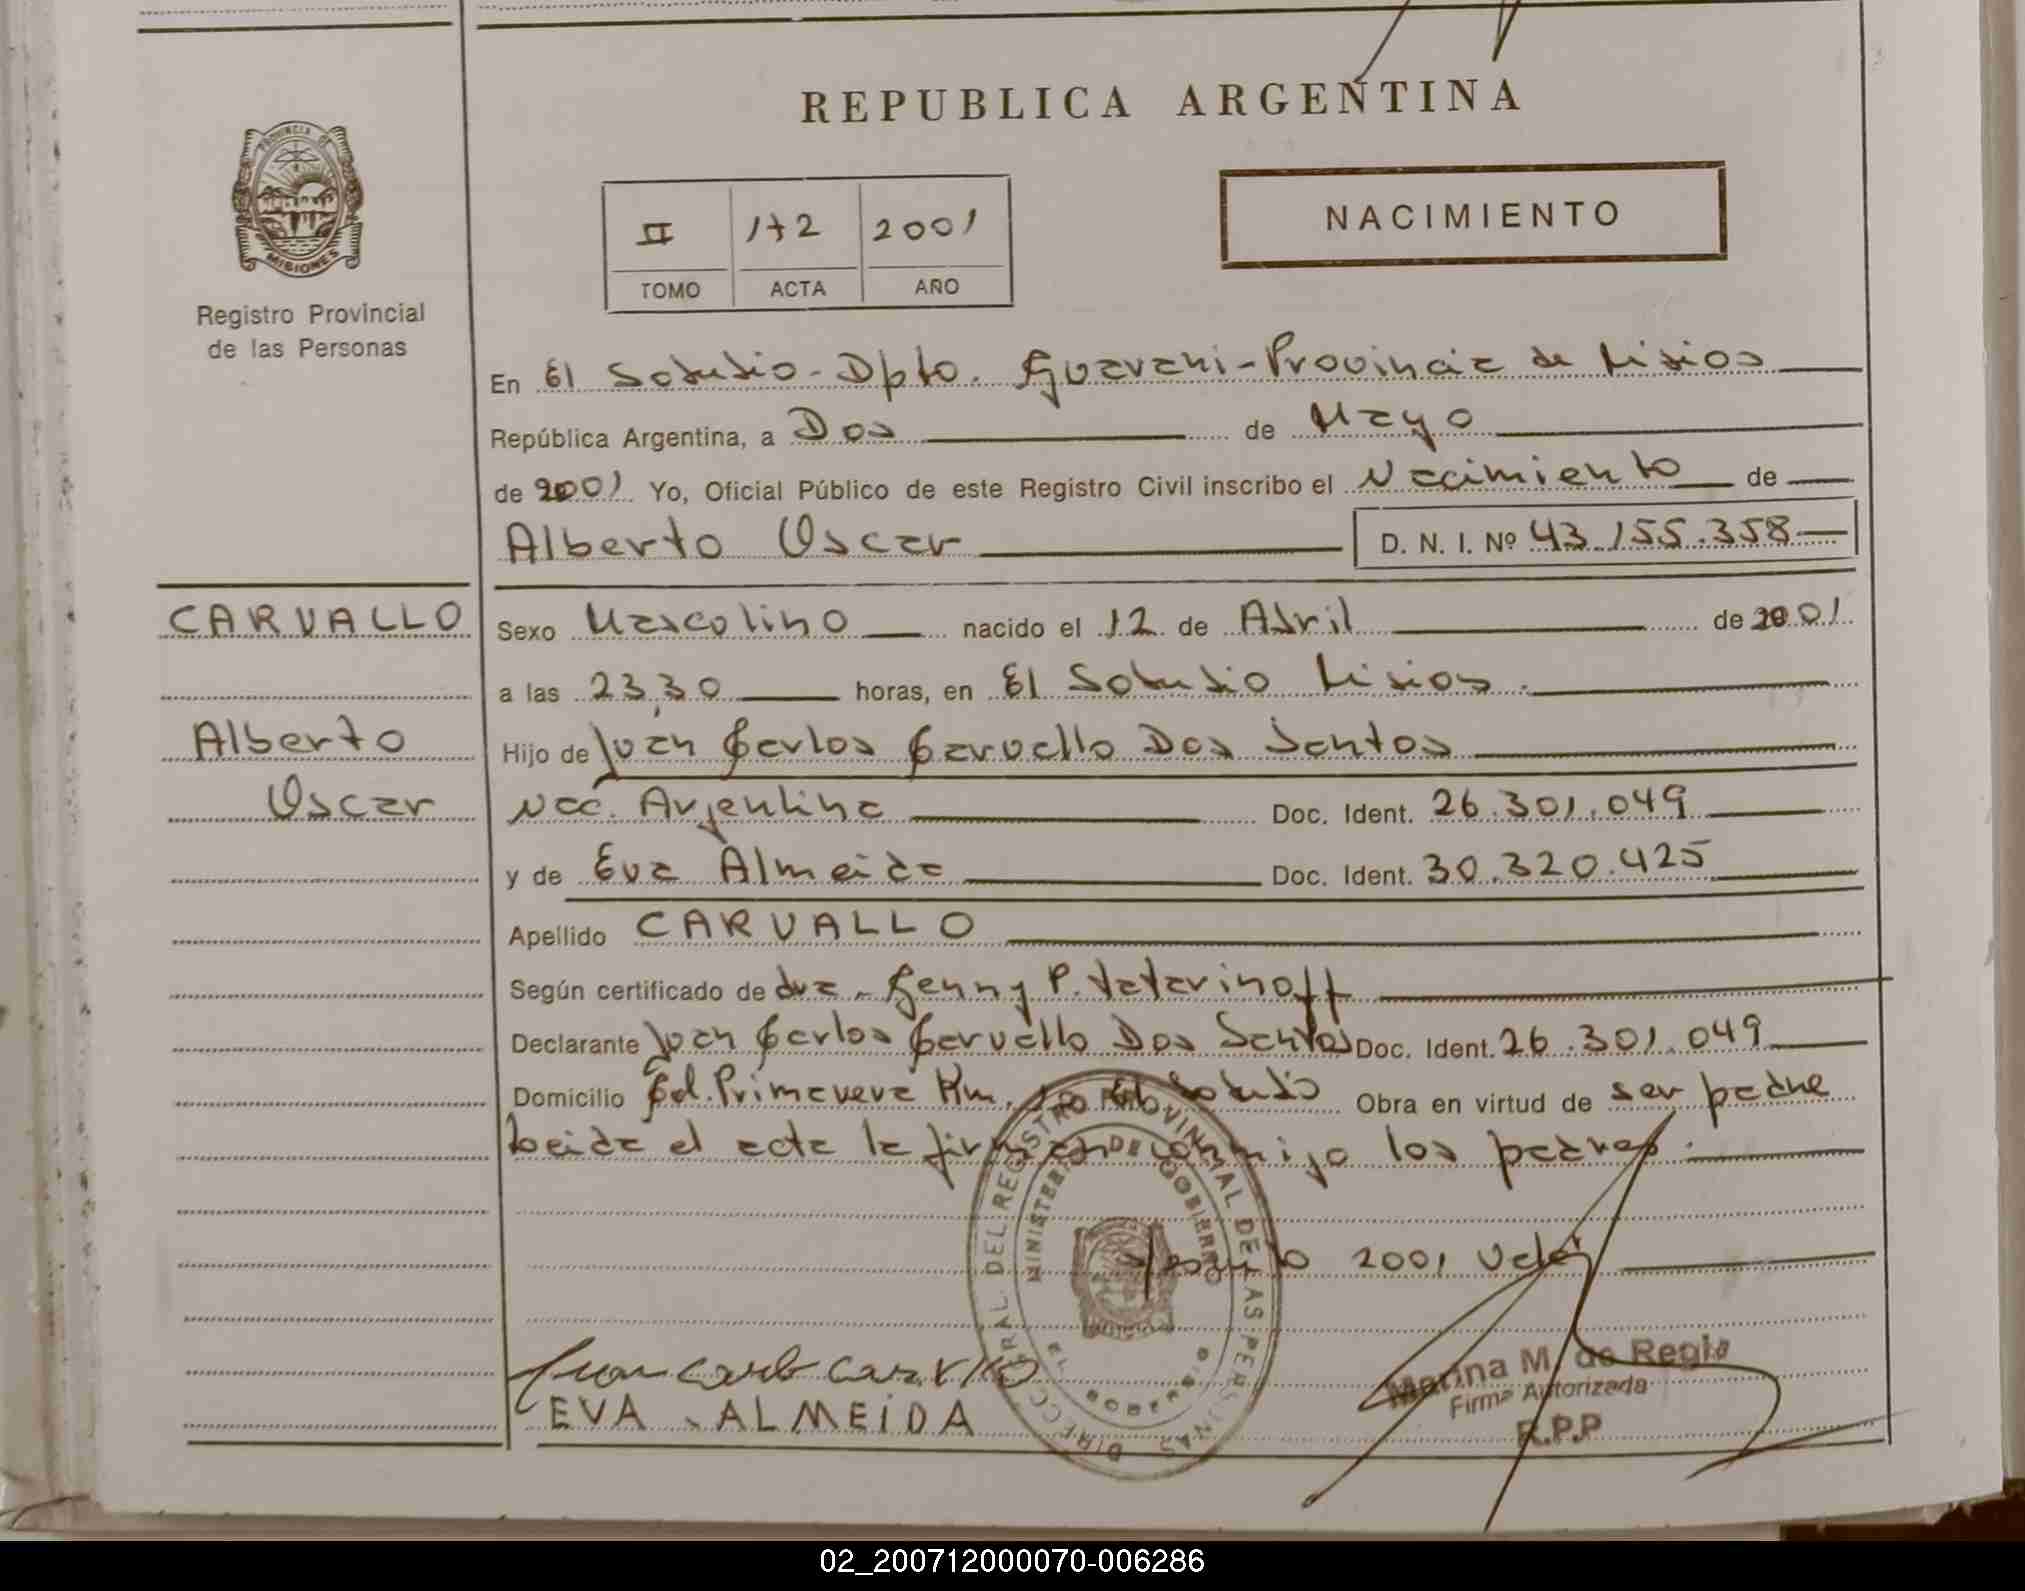 REPUBLICA ARGENTINA
PROVINCIA DE
MISIONES
Registro Provincial
de las Personas
II 172 2001
TOMO ACTA AÑO
NACIMIENTO
En El Soberbio - Dpto. Guarani - Provincia de Misios
República Argentina, a Dos de Mayo
de 2001 Yo, Oficial Público de este Registro Civil inscribo el Nacimiento de
Alberto Oscar D. N. I. Nº 43.155.358
CARVALLO
Alberto
Oscar
Sexo Mascolino nacido el 12 de Abril de 2001
a las 23,30 horas, en El Soberbio Misios.
Hijo de Juan Carlos Carvallo Dos Santos
Nac. Argentina Doc. Ident. 26.301.049
y de Eva Almeida Doc. Ident. 30.320.425
Apellido CARVALLO
Según certificado de dra. Genny P. Tatarinoff
Declarante Juan Carlos Carvallo Dos Santos Doc. Ident. 26.301.049
Domicilio Col. Primavera Km. El Soberbio Obra en virtud de ser padre
Leida el acta la firman conmigo los padres.
2001 Vale
Juan Carlos Carvallo
EVA ALMEIDA
DIRECC. GRAL. DEL REGISTRO PROVINCIAL DE LAS PERSONAS
MINISTERIO DE GOBIERNO
EL SOBERBIO
Marina M. de Regla
Firma Autorizada
R.P.P
02_200712000070-006286